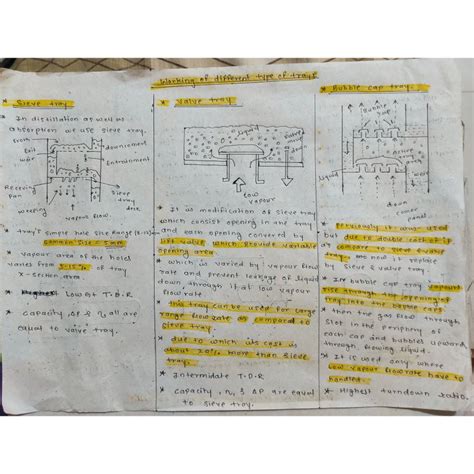 Working of different type of trays
* Sieve tray
* In distillation as well as
absorption we use sieve tray.
from
exit
weir
downcomment
Entrainment
Receiving
pan
weeping
vapour flow
sieve
tray
* tray's simple hole size Range
common size is 5mm
* vapour area of the holes
varies from 5-15% of tray
X-section area.
* Lowest T.D.R
* capacity, ΔP & η all are
equal to valve tray.
* Valve tray
liquid
valve
Low
vapour
* It is modification of sieve tray
which consist opening in tray
and each opening covered by
lift valve which provide variable
opening area
* which is varied by vapour flow
rate and prevent leakage of liquid
down through it at low vapour
flow rate.
* this tray can be used for large
range flow rate as compared to
sieve tray.
* due to which its cost is
about 20% more than sieve
tray.
* Intermidate T.D.R
* capacity, η, & ΔP are equal
to sieve tray.
* Bubble cap tray.
Bubble
cap
liquid
Active
area
down
comer
panel
* Previously it was used
but due to double
as compare to sieve & valve
tray. now it replace
by sieve & valve tray.
* In bubble cap tray vapour
rise through the opening of
tray into the bubble caps
* then the gas flow through
slot in the periphery of
each cap and bubbles upward
through flowing liquid.
* It is used only where
low vapour flowrate have to
handled.
* Highest turndown ratio.